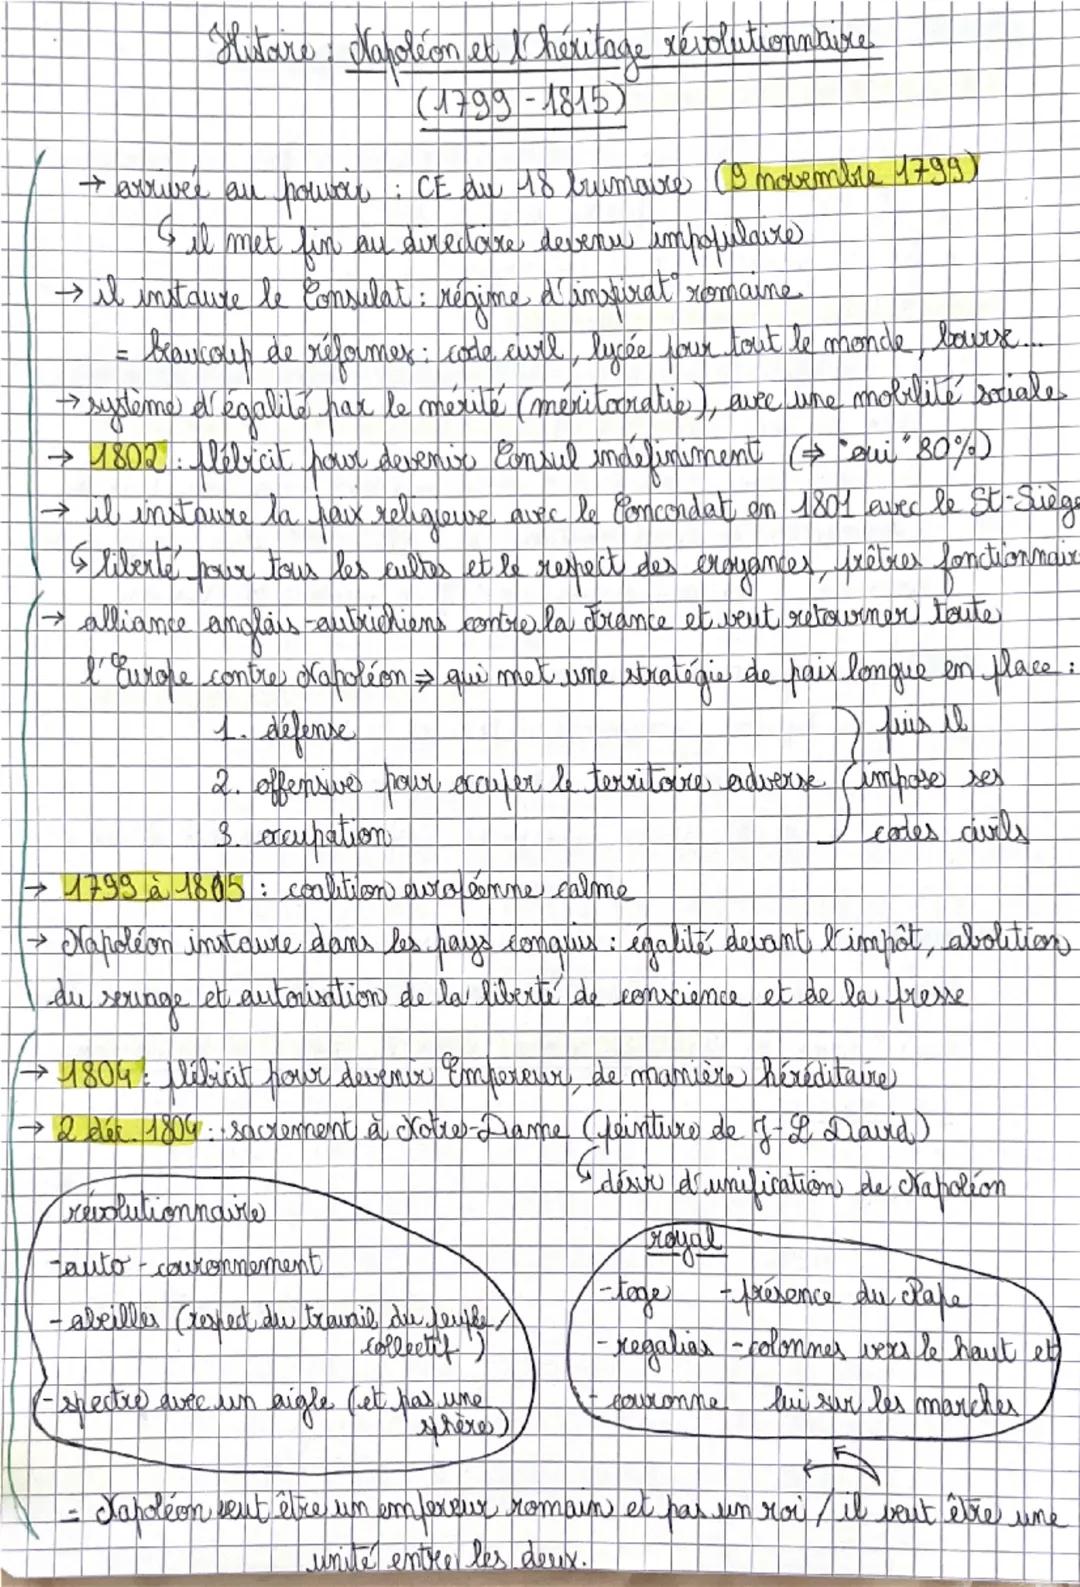 Hitoire : Napoléon et l'héritage révolutionnaire
(1799 - 1815)
→ arrivée au pouvoir : CE du 18 brumaire (9 novembre 1799)
↳ il met fin au directoire devenu impopulaire
→ il instaure le Consulat : régime d'inspirat° romaine
= beaucoup de réformes : code civil, lycée pour tout le monde, bourse...
→ système d'égalité par le mérité (méritocratie), avec une mobilité sociale
→ 1802 : plébicit pour devenir Consul indéfiniment (⇒ "oui" 80%)
→ il instaure la paix religieuse avec le Concordat en 1801 avec le St-Siège
↳ liberté pour tous les cultes et le respect des croyances, prêtres fonctionnair
→ alliance anglais-autrichiens contre la France et veut retourner toute
l'Europe contre Napoléon ⇒ qui met une stratégie de paix longue en place :
1. défense
2. offensive pour occuper le territoire adverse
3. occupation
puis il
impose ses
codes civils
→ 1799 à 1805 : coalition européenne calme
→ Napoléon instaure dans les pays conquis : égalité devant l'impôt, abolition
du servage et autorisation de la liberté de conscience et de la presse
→ 1804 : plébicit pour devenir Empereur, de manière héréditaire
→ 2 déc. 1804 : sacrement à Notre-Dame (peinture de J-L David)
↳ désir d'unification de Napoléon
révolutionnaire
- auto-couronnement
- abeilles (respect du travail du peuple,
collectif)
- spectre avec un aigle (et pas une
sphère)
royal
- toge - présence du Pape
- regalias - colonnes vers le haut et
- couronne lui sur les marches
= Napoléon veut être un empereur romain et pas un roi / il veut être une
unité entre les deux.